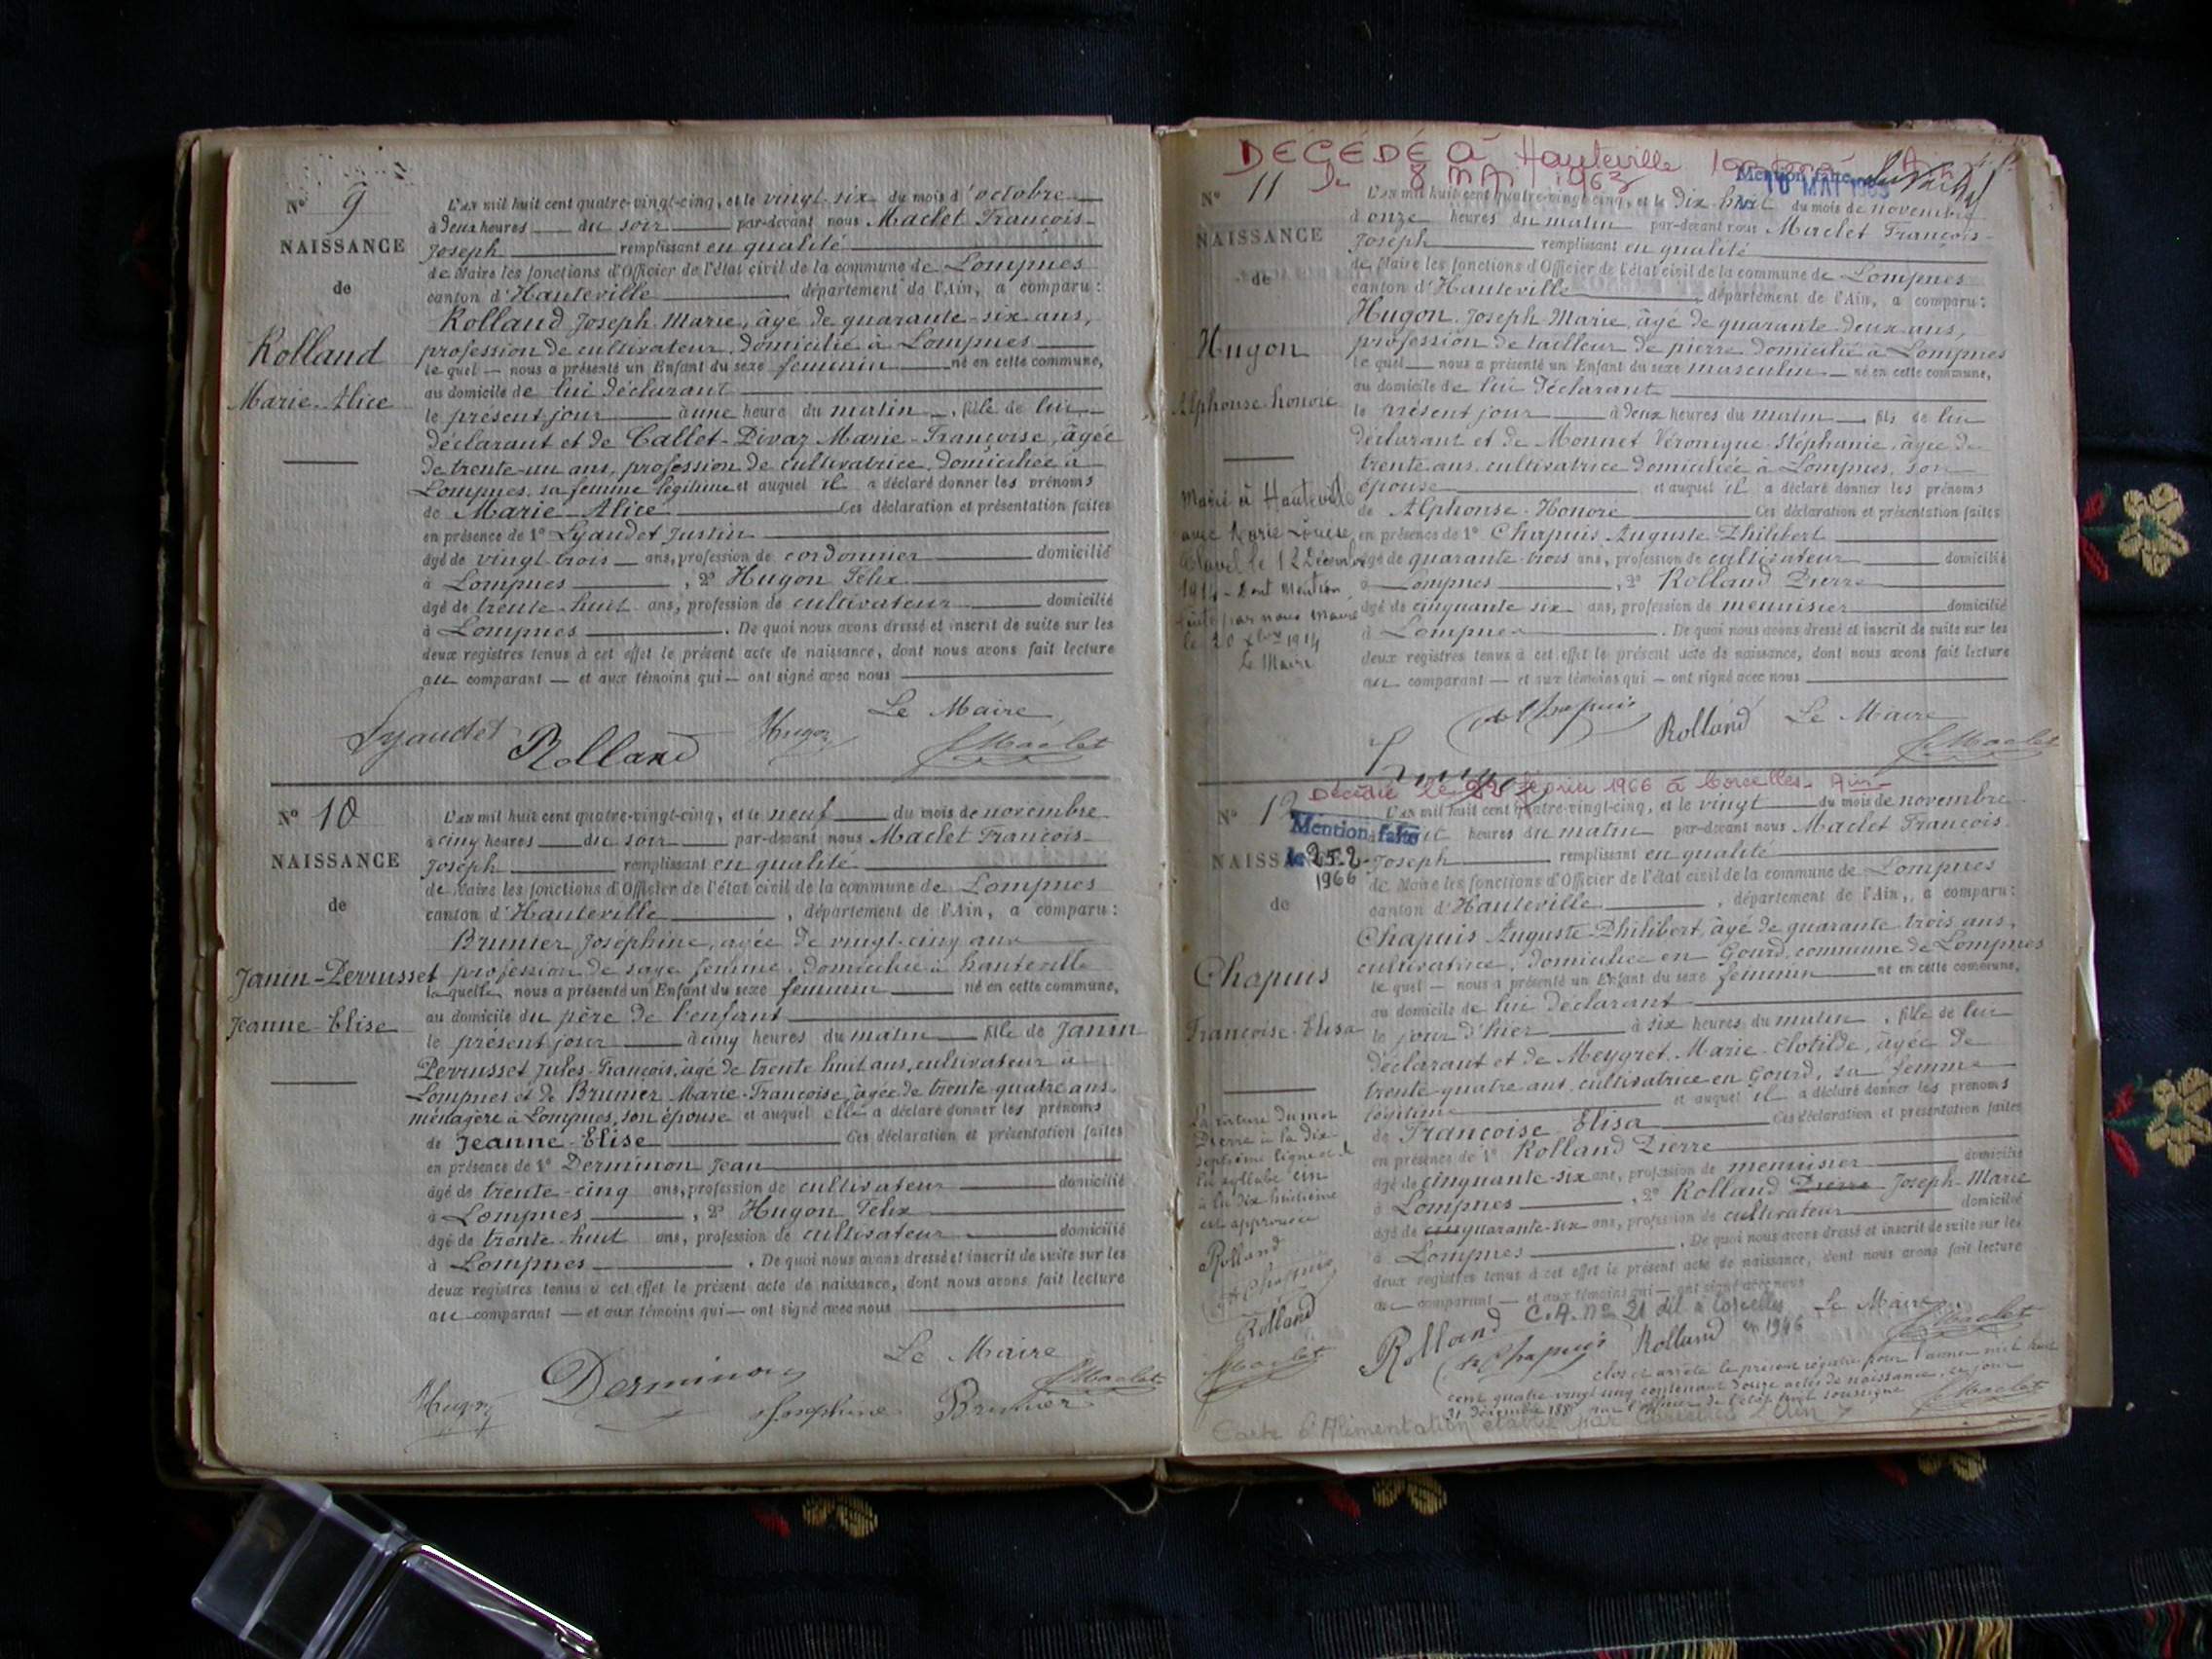 N° 9
NAISSANCE
de
Rolland
Marie-Alice
L'an mil huit cent quatre-vingt-cinq, et le vingt-six du mois d'octobre
à deux heures du soir par-devant nous Maclet François-
Joseph remplissant en qualité
de Maire les fonctions d'Officier de l'état civil de la commune de Lompnes
canton d'Hauteville, département de l'Ain, a comparu:
Rolland Joseph-Marie, âgé de quarante-six ans,
profession de cultivateur, domicilié à Lompnes
le quel — nous a présenté un Enfant du sexe féminin né en cette commune,
au domicile de lui déclarant
le présent jour à une heure du matin, fille de lui
déclarant et de Callet-Divaz Marie-Françoise, âgée
de trente-un ans, profession de cultivatrice, domiciliée à
Lompnes, sa femme légitime et auquel il a déclaré donner les prénoms
de Marie-Alice Ces déclaration et présentation faites
en présence de 1° Lyaudet Justin
âgé de vingt-trois ans, profession de cordonnier domicilié
à Lompnes, 2° Hugon Félix
âgé de trente-huit ans, profession de cultivateur domicilié
à Lompnes. De quoi nous avons dressé et inscrit de suite sur les
deux registres tenus à cet effet le présent acte de naissance, dont nous avons fait lecture
au comparant — et aux témoins qui — ont signé avec nous
Le Maire
Lyaudet Rolland Hugon Maclet
N° 10
NAISSANCE
de
Janin-Perrusset
Jeanne-Elise
L'an mil huit cent quatre-vingt-cinq, et le neuf du mois de novembre
à cinq heures du soir par-devant nous Maclet François-
Joseph remplissant en qualité
de Maire les fonctions d'Officier de l'état civil de la commune de Lompnes
canton d'Hauteville, département de l'Ain, a comparu:
Brunier Joséphine, agée de vingt-cinq ans
profession de sage femme, domiciliée à hauteville
laquelle nous a présenté un Enfant du sexe féminin né en cette commune,
au domicile du père de l'enfant
le présent jour à cinq heures du matin fille de Janin
Perrusset Jules-François, âgé de trente huit ans, cultivateur à
Lompnes et de Brunier Marie-Françoise, âgée de trente quatre ans
ménagère à Lompnes, son épouse et auquel elle a déclaré donner les prénoms
de Jeanne-Elise Ces déclaration et présentation faites
en présence de 1° Derminon Jean
âgé de trente-cinq ans, profession de cultivateur domicilié
à Lompnes, 2° Hugon Félix
âgé de trente-huit ans, profession de cultivateur domicilié
à Lompnes. De quoi nous avons dressé et inscrit de suite sur les
deux registres tenus à cet effet le présent acte de naissance, dont nous avons fait lecture
au comparant — et aux témoins qui — ont signé avec nous
Le Maire
Hugon Derminon Joséphine Brunier Maclet
DÉCÉDÉ à Hauteville
le 8 MAI 1963
Mention faite
10 MAI 1963
N° 11
NAISSANCE
de
Hugon
Alphonse-honoré
Marié à Hauteville
avec Marie Louise
le 12 Décembre
1914 - Dont mention
faite par nous Maire
le 20 Xbre 1914
Le Maire
L'an mil huit cent quatre-vingt-cinq, et le dix huit du mois de novembre
à onze heures du matin par-devant nous Maclet François-
Joseph remplissant en qualité
de Maire les fonctions d'Officier de l'état civil de la commune de Lompnes
canton d'Hauteville, département de l'Ain, a comparu:
Hugon Joseph-Marie, âgé de quarante-deux ans,
profession de tailleur de pierre domicilié à Lompnes
le quel nous a présenté un Enfant du sexe masculin né en cette commune,
au domicile de lui déclarant
le présent jour à deux heures du matin, fils de lui
déclarant et de Monnet Véronique-Stéphanie, âgée de
trente ans, cultivatrice domiciliée à Lompnes, son
épouse et auquel il a déclaré donner les prénoms
de Alphonse-Honoré Ces déclaration et présentation faites
en présence de 1° Chapuis Auguste-Philibert
âgé de quarante-trois ans, profession de cultivateur domicilié
à Lompnes, 2° Rolland Pierre
âgé de cinquante six ans, profession de menuisier domicilié
à Lompnes. De quoi nous avons dressé et inscrit de suite sur les
deux registres tenus à cet effet le présent acte de naissance, dont nous avons fait lecture
au comparant — et aux témoins qui — ont signé avec nous
Chapuis Rolland Le Maire
Hugon Maclet
Décédée le 22 février 1966 à Corcelles - Ain -
N° 12
Mention faite
le 25.2
1966
NAISSANCE
de
Chapuis
Françoise-Elisa
La rature du mot
Pierre à la dix
septième ligne et
la syllabe cin
à la dix huitième
est approuvée
Rolland
Chapuis
Rolland
Maclet
L'an mil huit cent quatre-vingt-cinq, et le vingt du mois de novembre
heures du matin par-devant nous Maclet François
Joseph remplissant en qualité
de Maire les fonctions d'Officier de l'état civil de la commune de Lompnes
canton d'Hauteville, département de l'Ain, a comparu:
Chapuis Auguste-Philibert, âgé de quarante trois ans,
cultivatrice, domiciliée en Gourd, commune de Lompnes
le quel — nous a présenté un Enfant du sexe féminin né en cette commune,
au domicile de lui déclarant
le jour d'hier à six heures du matin, fille de lui
déclarant et de Meygret Marie-Clotilde, âgée de
trente-quatre ans, cultivatrice en Gourd, sa femme
légitime et auquel il a déclaré donner les prénoms
de Françoise-Elisa Ces déclaration et présentation faites
en présence de 1° Rolland Pierre
âgé de cinquante-six ans, profession de menuisier domicilié
à Lompnes, 2° Rolland Pierre Joseph-Marie
âgé de cin quarante-six ans, profession de cultivateur domicilié
à Lompnes. De quoi nous avons dressé et inscrit de suite sur les
deux registres tenus à cet effet le présent acte de naissance, dont nous avons fait lecture
au comparant — et aux témoins qui — ont signé avec nous
C.A. n° 21 dél. à Corcelles Le Maire
en 1946
Rolland Chapuis Rolland Maclet
clos et arrêté le présent régistre pour l'année mil huit
cent quatre vingt cinq contenant douze actes de naissance, ce jour
31 décembre 1885 par l'officier de l'état civil soussigné Maclet
Carte d'Alimentation établie par Corcelles Ain